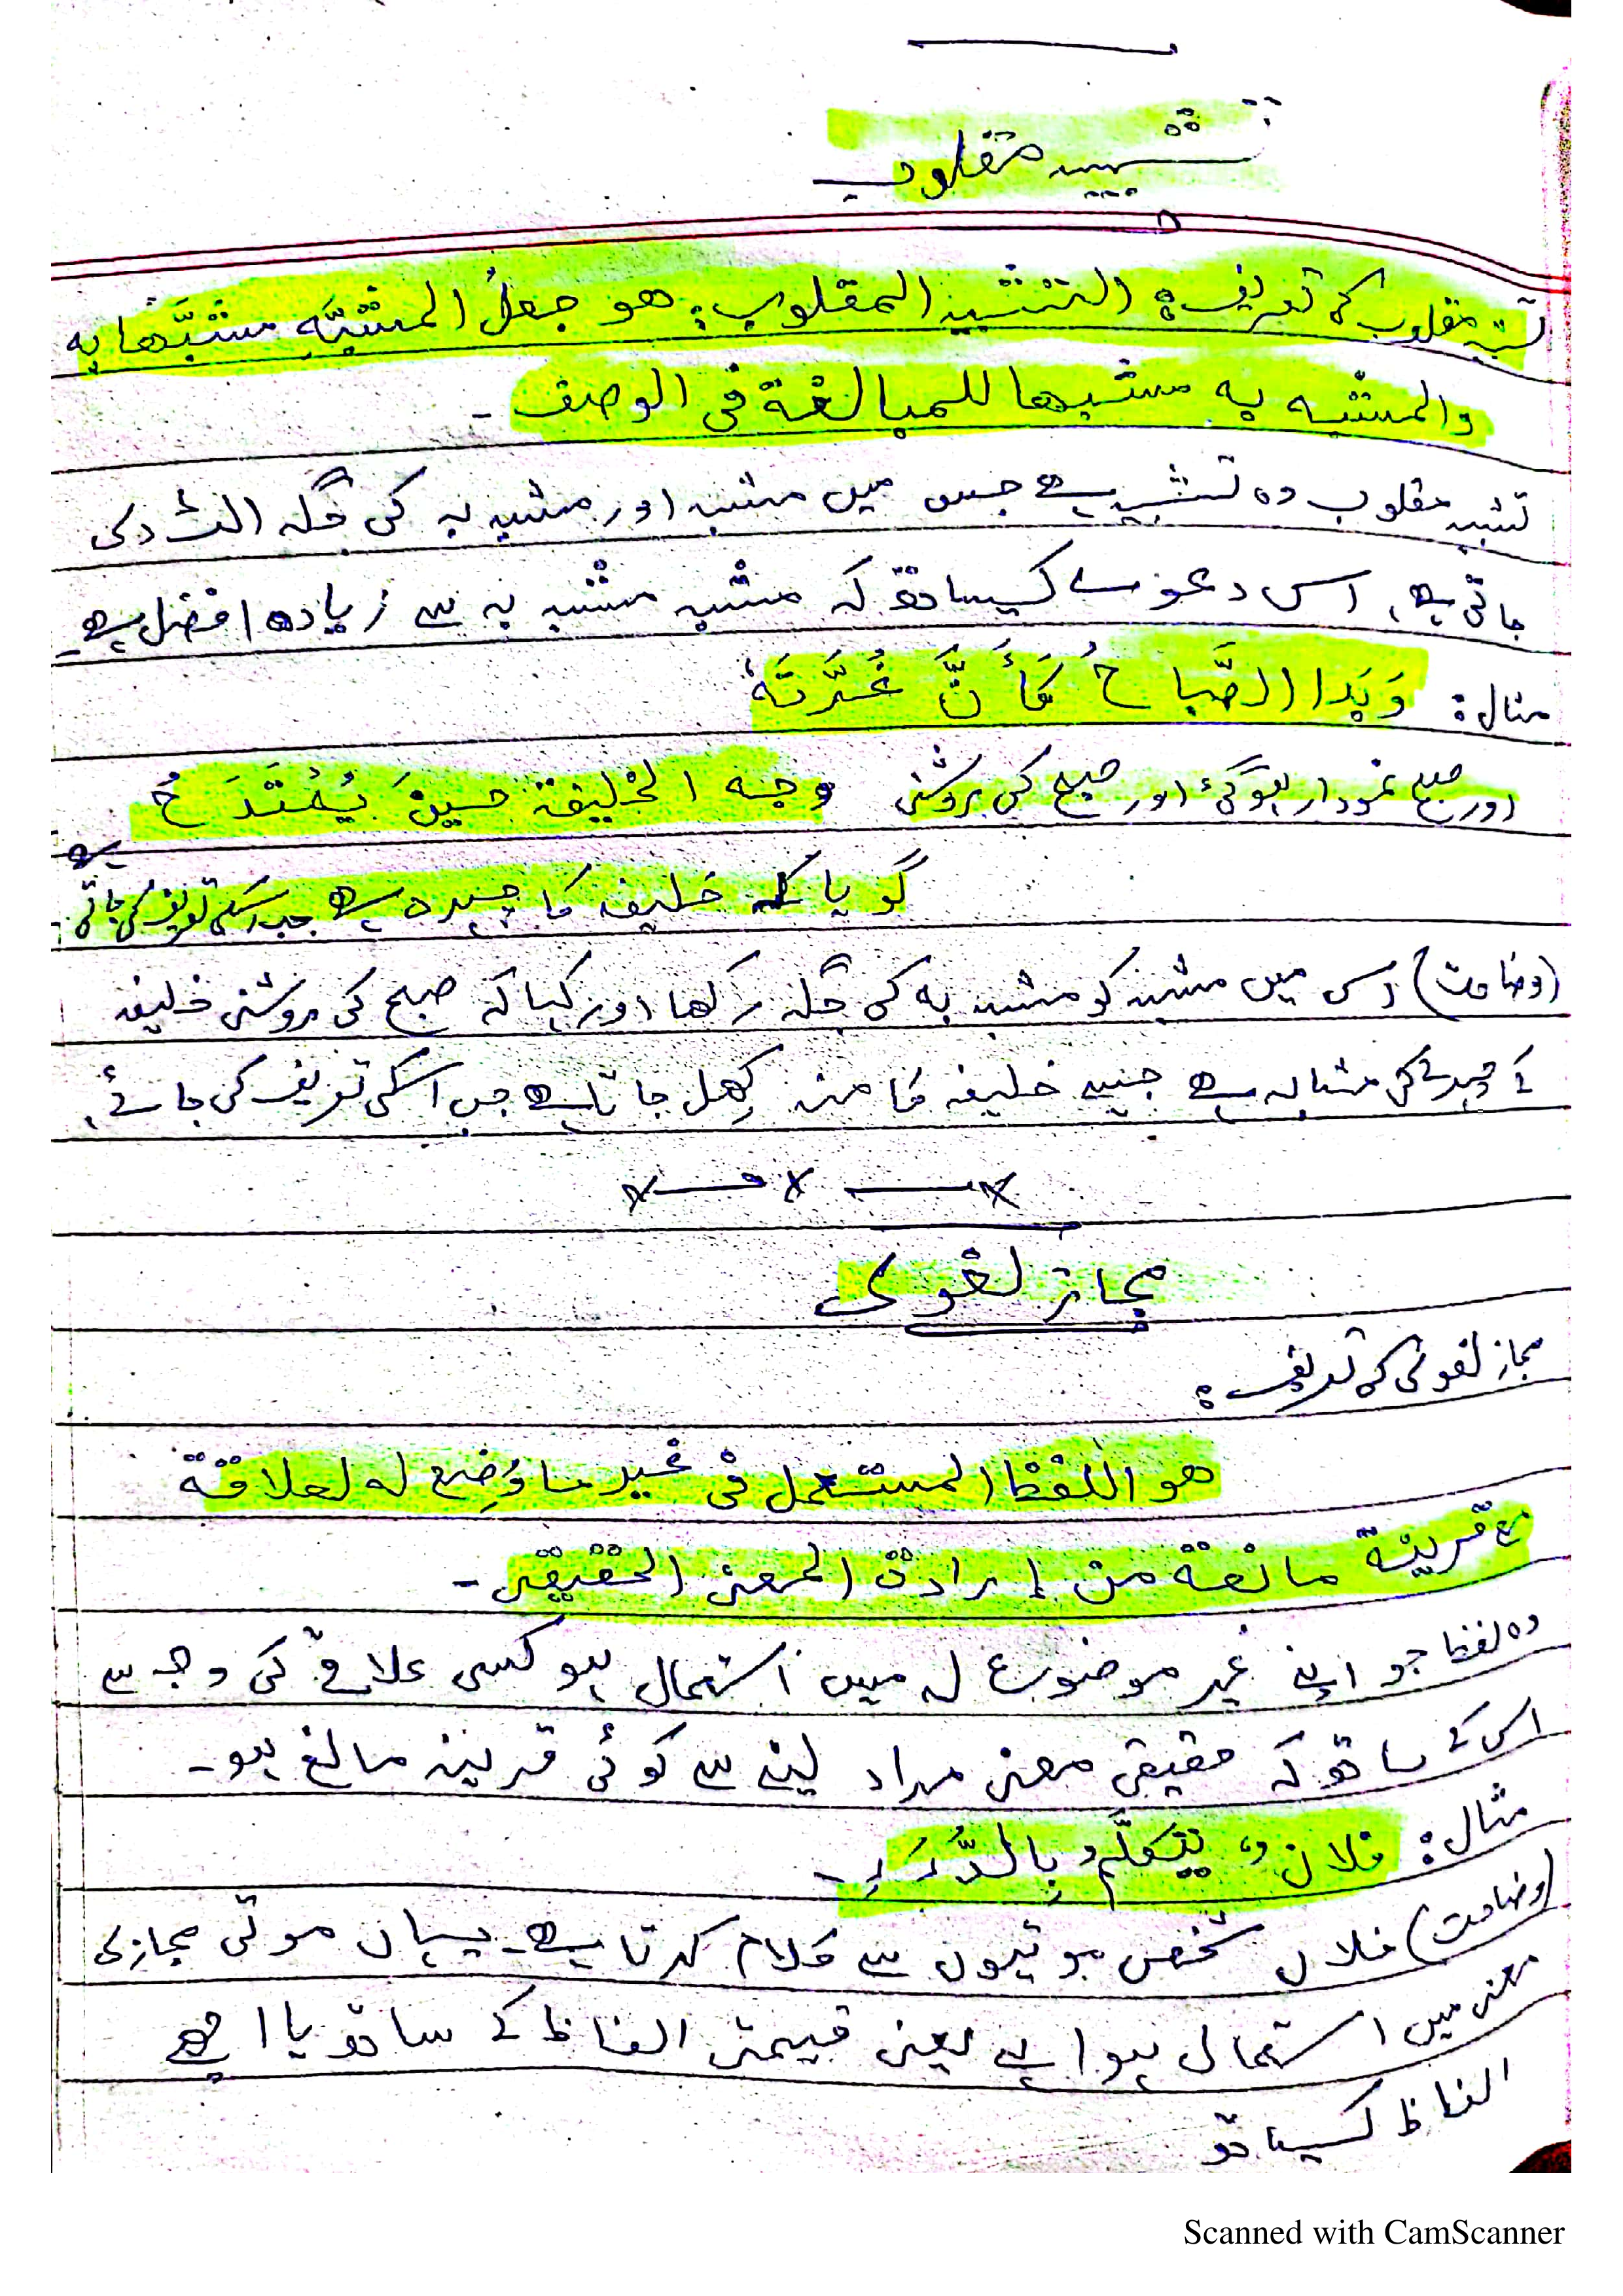 تشبیہ مقلوب
تشبیہ مقلوب کی تعریف: التشبيه المقلوب: هو جعلُ المشبَّهِ مشبَّهًا به
والمشبه به مشبها للمبالغة فى الوصف -
تشبیہ مقلوب وہ تشبیہ ہے جس میں مشبہ اور مشبہ بہ کی جگہ الٹ دی
جاتی ہے، اس دعوے کیساتھ کہ مشبہ مشبہ بہ سے زیادہ افضل ہے۔
مثال: وَبَدا الصَّباحُ كَأَنَّ غُرَّتَهُ
اور صبح نمودار ہوگئی اور صبح کی روشنی وجه الخليفة حينَ يُمْتَدَحُ
گویا کہ خلیفہ کا چہرہ ہے جب اسکی تعریف کی جاتی ہے
(وضاحت) اس میں مشبہ کو مشبہ بہ کی جگہ رکھا اور کہا کہ صبح کی روشنی خلیفہ
کے چہرے کی مشابہ ہے جیسے خلیفہ کا منہ کھل جاتا ہے جب اسکی تعریف کی جائے،
مجاز لغوی
مجاز لغوی کی تعریف:
هو اللفظ المستعمل فى غير ما وُضِع له لعلاقة
مع قرينة مانعة من إرادة المعنى الحقيقى -
وہ لفظ جو اپنے غیر موضوع لہ میں استعمال ہو کسی علاقے کی وجہ سے
اس کے ساتھ کہ حقیقی معنی مراد لینے سے کوئی قرینہ مانع ہو۔
مثال: فلانٌ يتكلَّمُ بِالدُّرَرِ -
(وضاحت) فلاں شخص موتیوں سے کلام کرتا ہے۔ یہاں موتی مجازی
معنی میں استعمال ہوا ہے یعنی قیمتی الفاظ کے ساتھ یا اچھے
الفاظ کیساتھ
Scanned with CamScanner